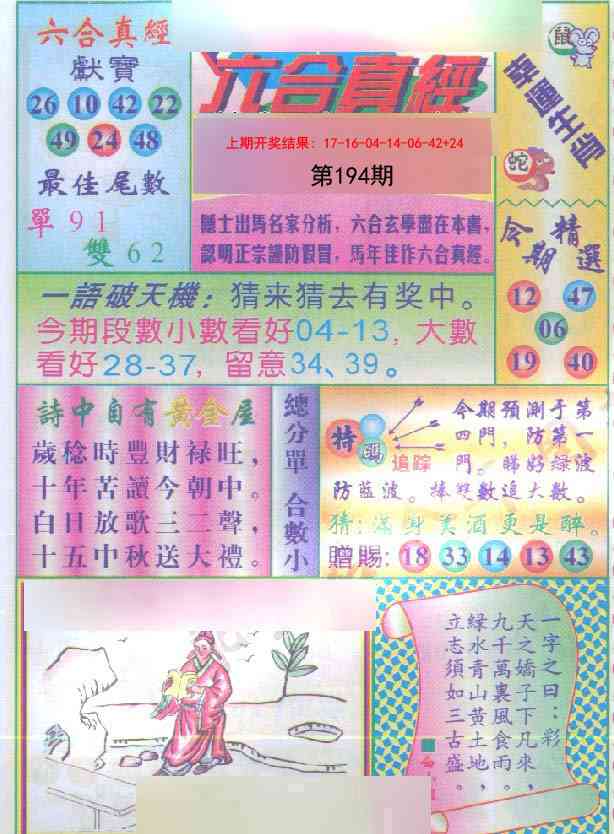 六合真經
獻寶
26 10 42 22
49 24 48
最佳尾數
單 9 1
雙 6 2
六合真經
上期开奖结果：17-16-04-14-06-42+24
第194期
隱士出馬名家分析，六合玄學盡在本書，
認明正宗謹防假冒，馬年佳作六合真經。
鼠
幸運生肖
蛇
今期精選
12 47
06
19 40
一語破天機：猜来猜去有奖中。
今期段數小數看好04-13，大數
看好28-37，留意34、39。
詩中自有黃金屋
歲稔時豐財禄旺，
十年苦讀今朝中。
白日放歌三二聲，
十五中秋送大禮。
總分單 合數小
特碼
追踪
今期預測于第
四門，防第一
門。睇好绿波
防藍波。捧雙數追大數。
猜：滿身美酒更是醉。
贈賜：18 33 14 13 43
一字之曰：彩
天之嬌子下凡來，
九千萬裏風食雨。
緑水青山黄土地，
立志須如三古盛。